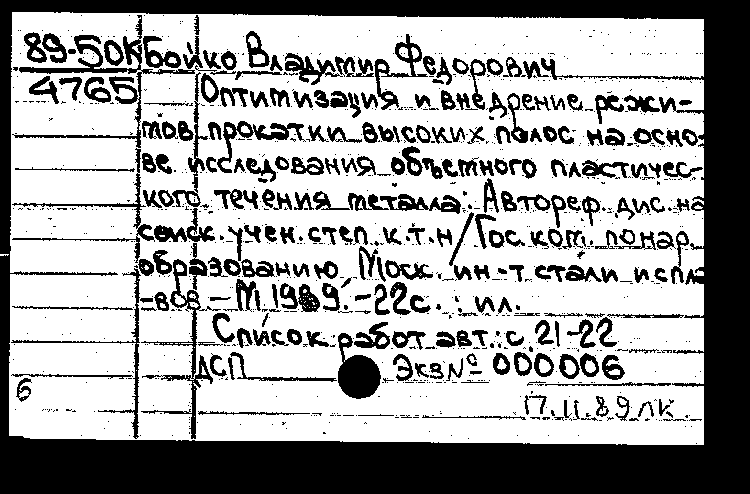 89-50К Бойко Владимир Федорович
4765 Оптимизация и внедрение режи-
мов прокатки высоких полос на осно-
ве исследования объемного пластичес-
кого течения металла: Автореф. дис. на
соиск. учен. степ. к.т.н/Гос. ком. по нар.
образованию, Моск. ин-т стали и спла
-вов - М 1989. - 22с. : ил.
Список работ авт.: с. 21-22
ДСП Экз № 000006
6
17.11.89 лк.